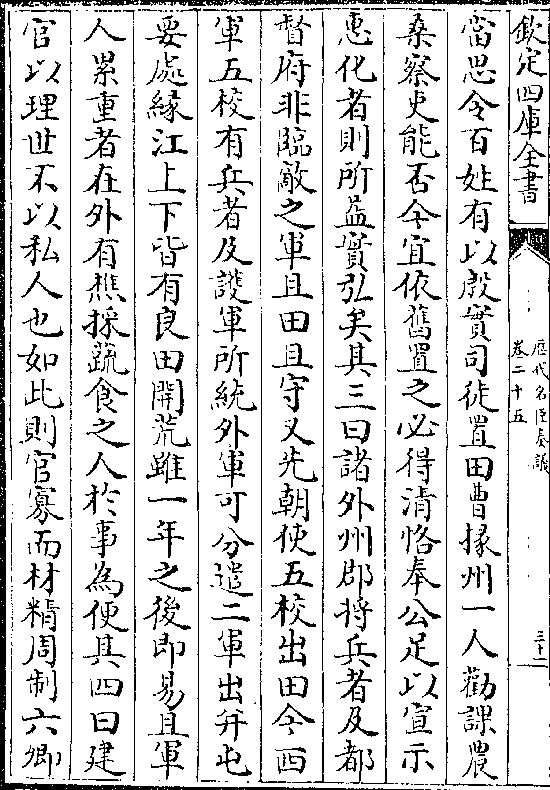 欽定四庫全書
歷代名臣奏議
卷二十五
三十二
當思令百姓有以殷實司徒置田曹掾州一人勸課農
桑察吏能否今宜依舊置之必得清恪奉公足以宣示
惠化者則所益實弘矣其三曰諸外州郡將兵者及都
督府非臨敵之軍且田且守又先朝使五校出田今四
軍五校有兵者及護軍所統外軍可分遣二軍出并屯
要處緣江上下皆有良田開荒雖一年之後即易且軍
人累重者在外有樵採蔬食之人於事為便其四曰建
官以理世不以私人也如此則官寡而材精周制六卿